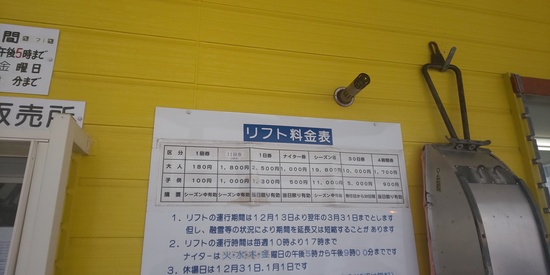 間
午後5時まで
金 曜日
分まで
販売所
リフト料金表
区分 1回券 11回券 1日券 ナイター券 シーズン券 30日券 4時間券
大人 180円 1,800円 2,500円 1,000円 10,000円 1,700円
子供 100円 1,000円 1,300円 500円 11,000円 5,000円 900円
摘要 シーズン中有効 シーズン中有効 当日限り有効 当日限り有効 シーズン中有効 当日限り有効
1、リフトの運行期間は12月13日より翌年の3月31までとします
但し、融雪等の状況により期間を延長又は短縮することが あります
2、リフトの運行時間は毎週10時より17時まで
ナイターは 火・水・木・金 曜日の午後5時から午後9時00分までです
3、休曜日は12月31日、1月1日です